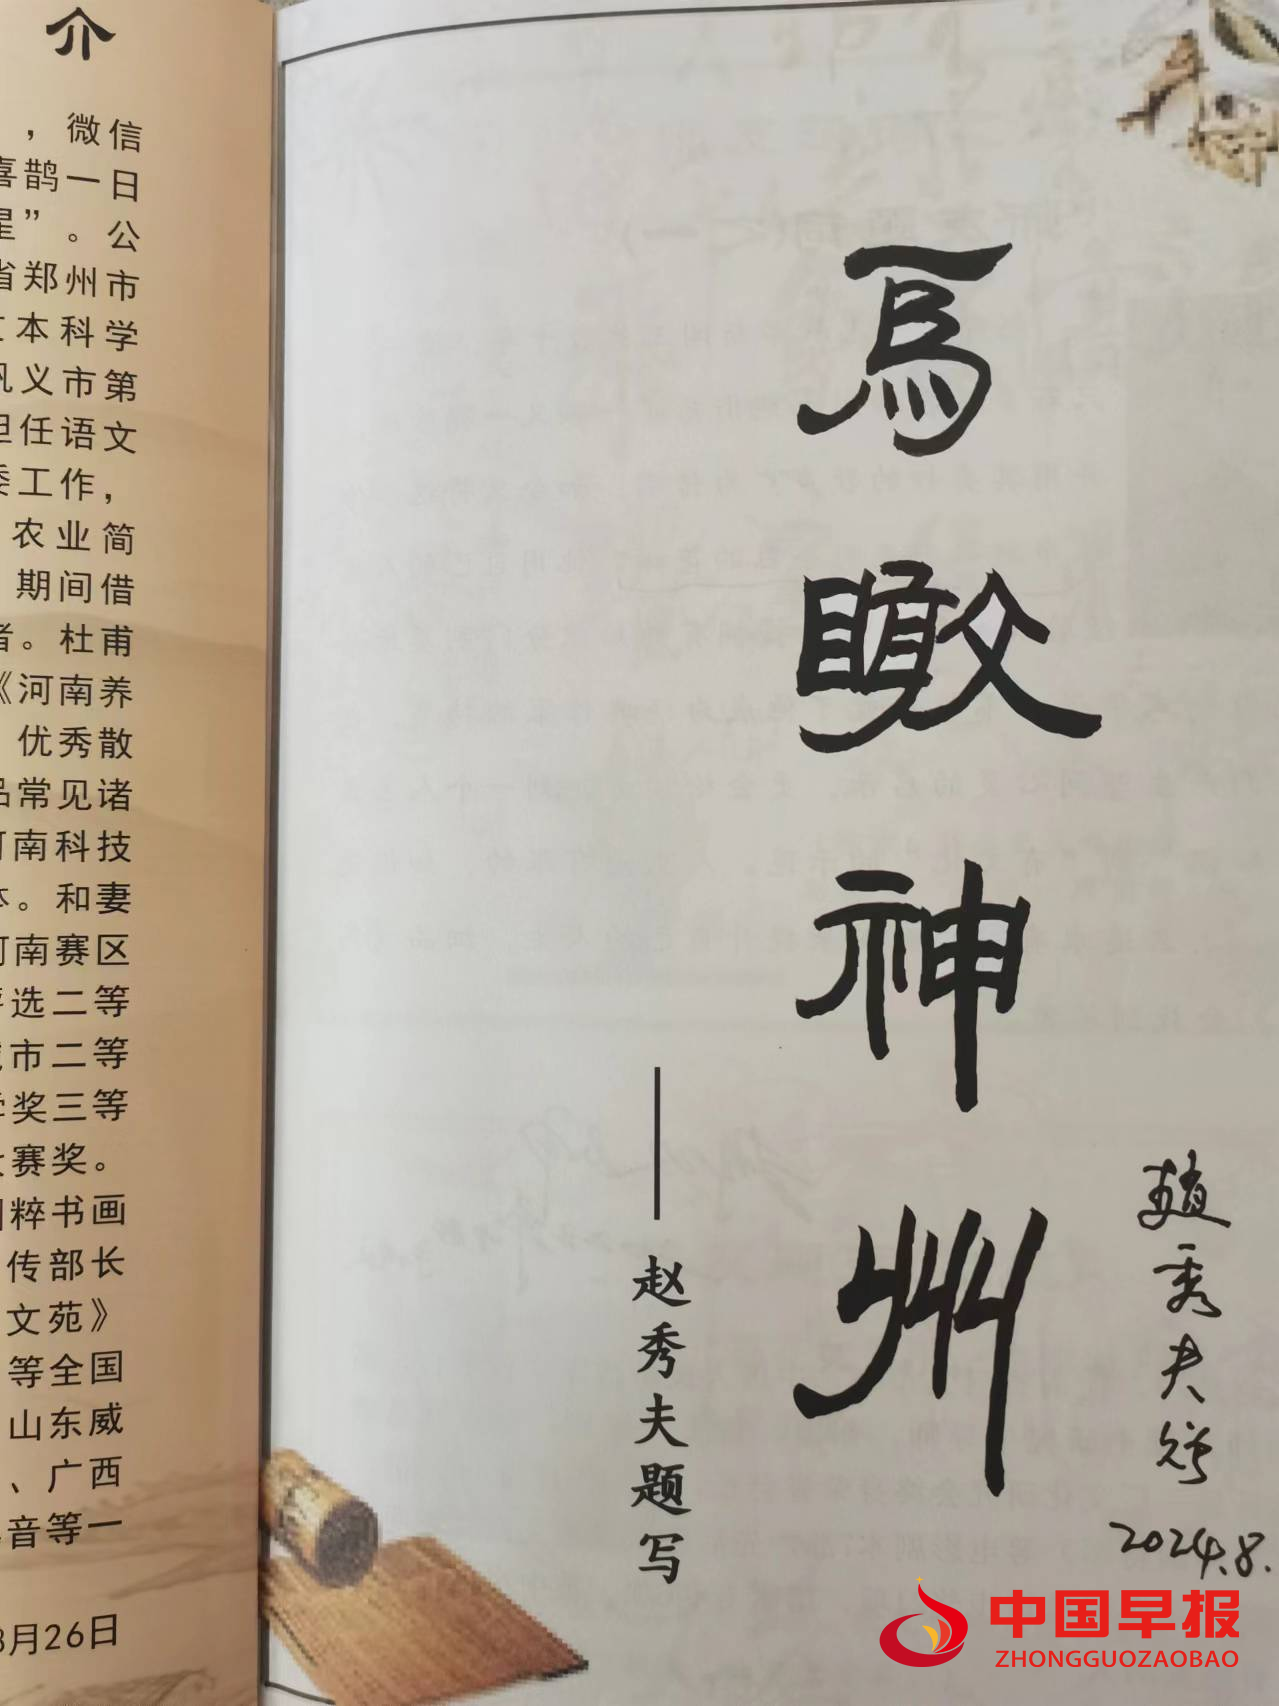 介
，微信
喜鹊一日
星”。公
省郑州市
本科学
巩义市第
担任语文
委工作，
农业简
期间借
者。杜甫
《河南养
优秀散
品常见诸
河南科技
体。和妻
河南赛区
评选二等
市二等
学奖三等
赛奖。
国粹书画
传部长
文苑》
等全国
山东威
、广西
音等一
8月26日
鳥瞰神州
——赵秀夫题写
趙秀夫
2024.8.
中国早报
ZHONGGUOZAOBAO